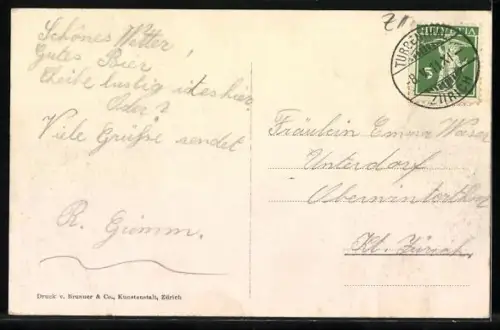 Schönes Wetter,
Gutes Bier
Cheibe lustig ist es hier
Oder?
Viele Grüsse sendet
R. Grimm.
Druck v. Brunner & Co., Kunstanstalt, Zürich
HELVETIA
5
TURBEN
ZÜRICH
Fräulein Emma Weiser
Unterdorf
Oberwinterthur
Kt. Zürich.